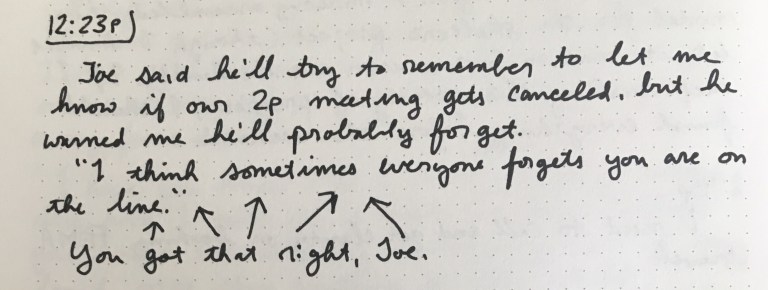 12:23p
Joe said he'll try to remember to let me
know if our 2p meeting gets canceled, but he
warned me he'll probably forget.
"I think sometimes everyone forgets you are on
the line."
You got that right, Joe.